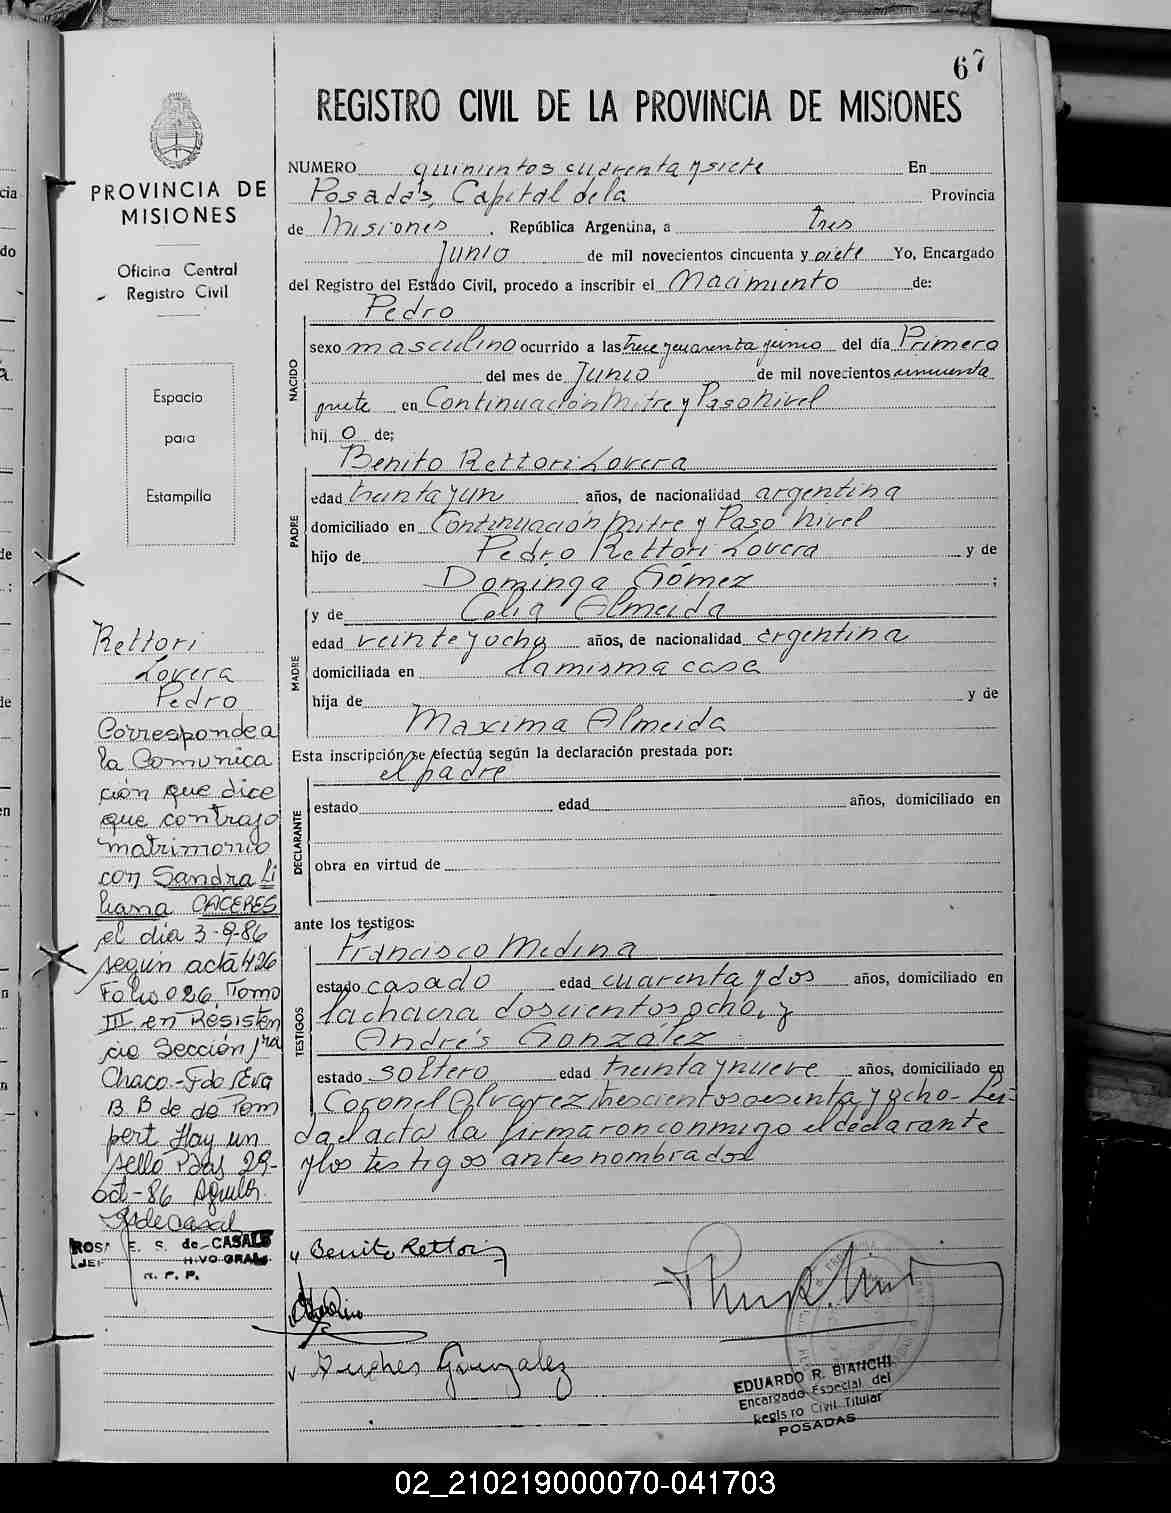 67
REGISTRO CIVIL DE LA PROVINCIA DE MISIONES
PROVINCIA DE
MISIONES
Oficina Central
Registro Civil
Espacio
para
Estampilla
NUMERO quinientos cuarenta y siete En
Posadas, Capital de la Provincia
de Misiones, República Argentina, a tres
Junio de mil novecientos cincuenta y siete Yo, Encargado
del Registro del Estado Civil, procedo a inscribir el Nacimiento de:
NACIDO
Pedro
sexo masculino ocurrido a las trece y cuarenta y cinco del día Primero
del mes de Junio de mil novecientos cincuenta
y siete en Continuación Mitre y Paso Nivel
hij o de;
PADRE
Benito Rettori Lovera
edad treinta y un años, de nacionalidad argentina
domiciliado en Continuación Mitre y Paso Nivel
hijo de Pedro Rettori Lovera y de
Dominga Gómez ;
MADRE
y de Celia Almeida
edad veinte y ocho años, de nacionalidad argentina
domiciliada en la misma casa
hija de y de
Maxima Almeida
Esta inscripción se efectúa según la declaración prestada por:
el padre
DECLARANTE
estado edad años, domiciliado en
obra en virtud de
ante los testigos:
TESTIGOS
Francisco Medina
estado casado edad cuarenta y dos años, domiciliado en
la chacra doscientos ocho, y
Andrés González
estado soltero edad treinta y nueve años, domiciliado en
Coronel Alvarez trescientos sesenta y ocho - Leí-
da el acta la firmaron conmigo el declarante
y los testigos antes nombrados
Rettori
Lovera
Pedro
Corresponde a
la Comunica
ción que dice
que contrajo
matrimonio
con Sandra Li
liana CACERES
el día 3-9-86
según acta 426
Folio 026, Tomo
III en Resisten
cia Sección 1ra
Chaco.- Fdo Eva
B B de de Pom
pert Hay un
sello Pdas 29-
oct-86
de Casal
ROSA E. S. de CASALS
R. P. P.
Benito Rettori
Gonzalez
EDUARDO R. BIANCHI
Encargado Especial del
Registro Civil Titular
POSADAS
02_210219000070-041703